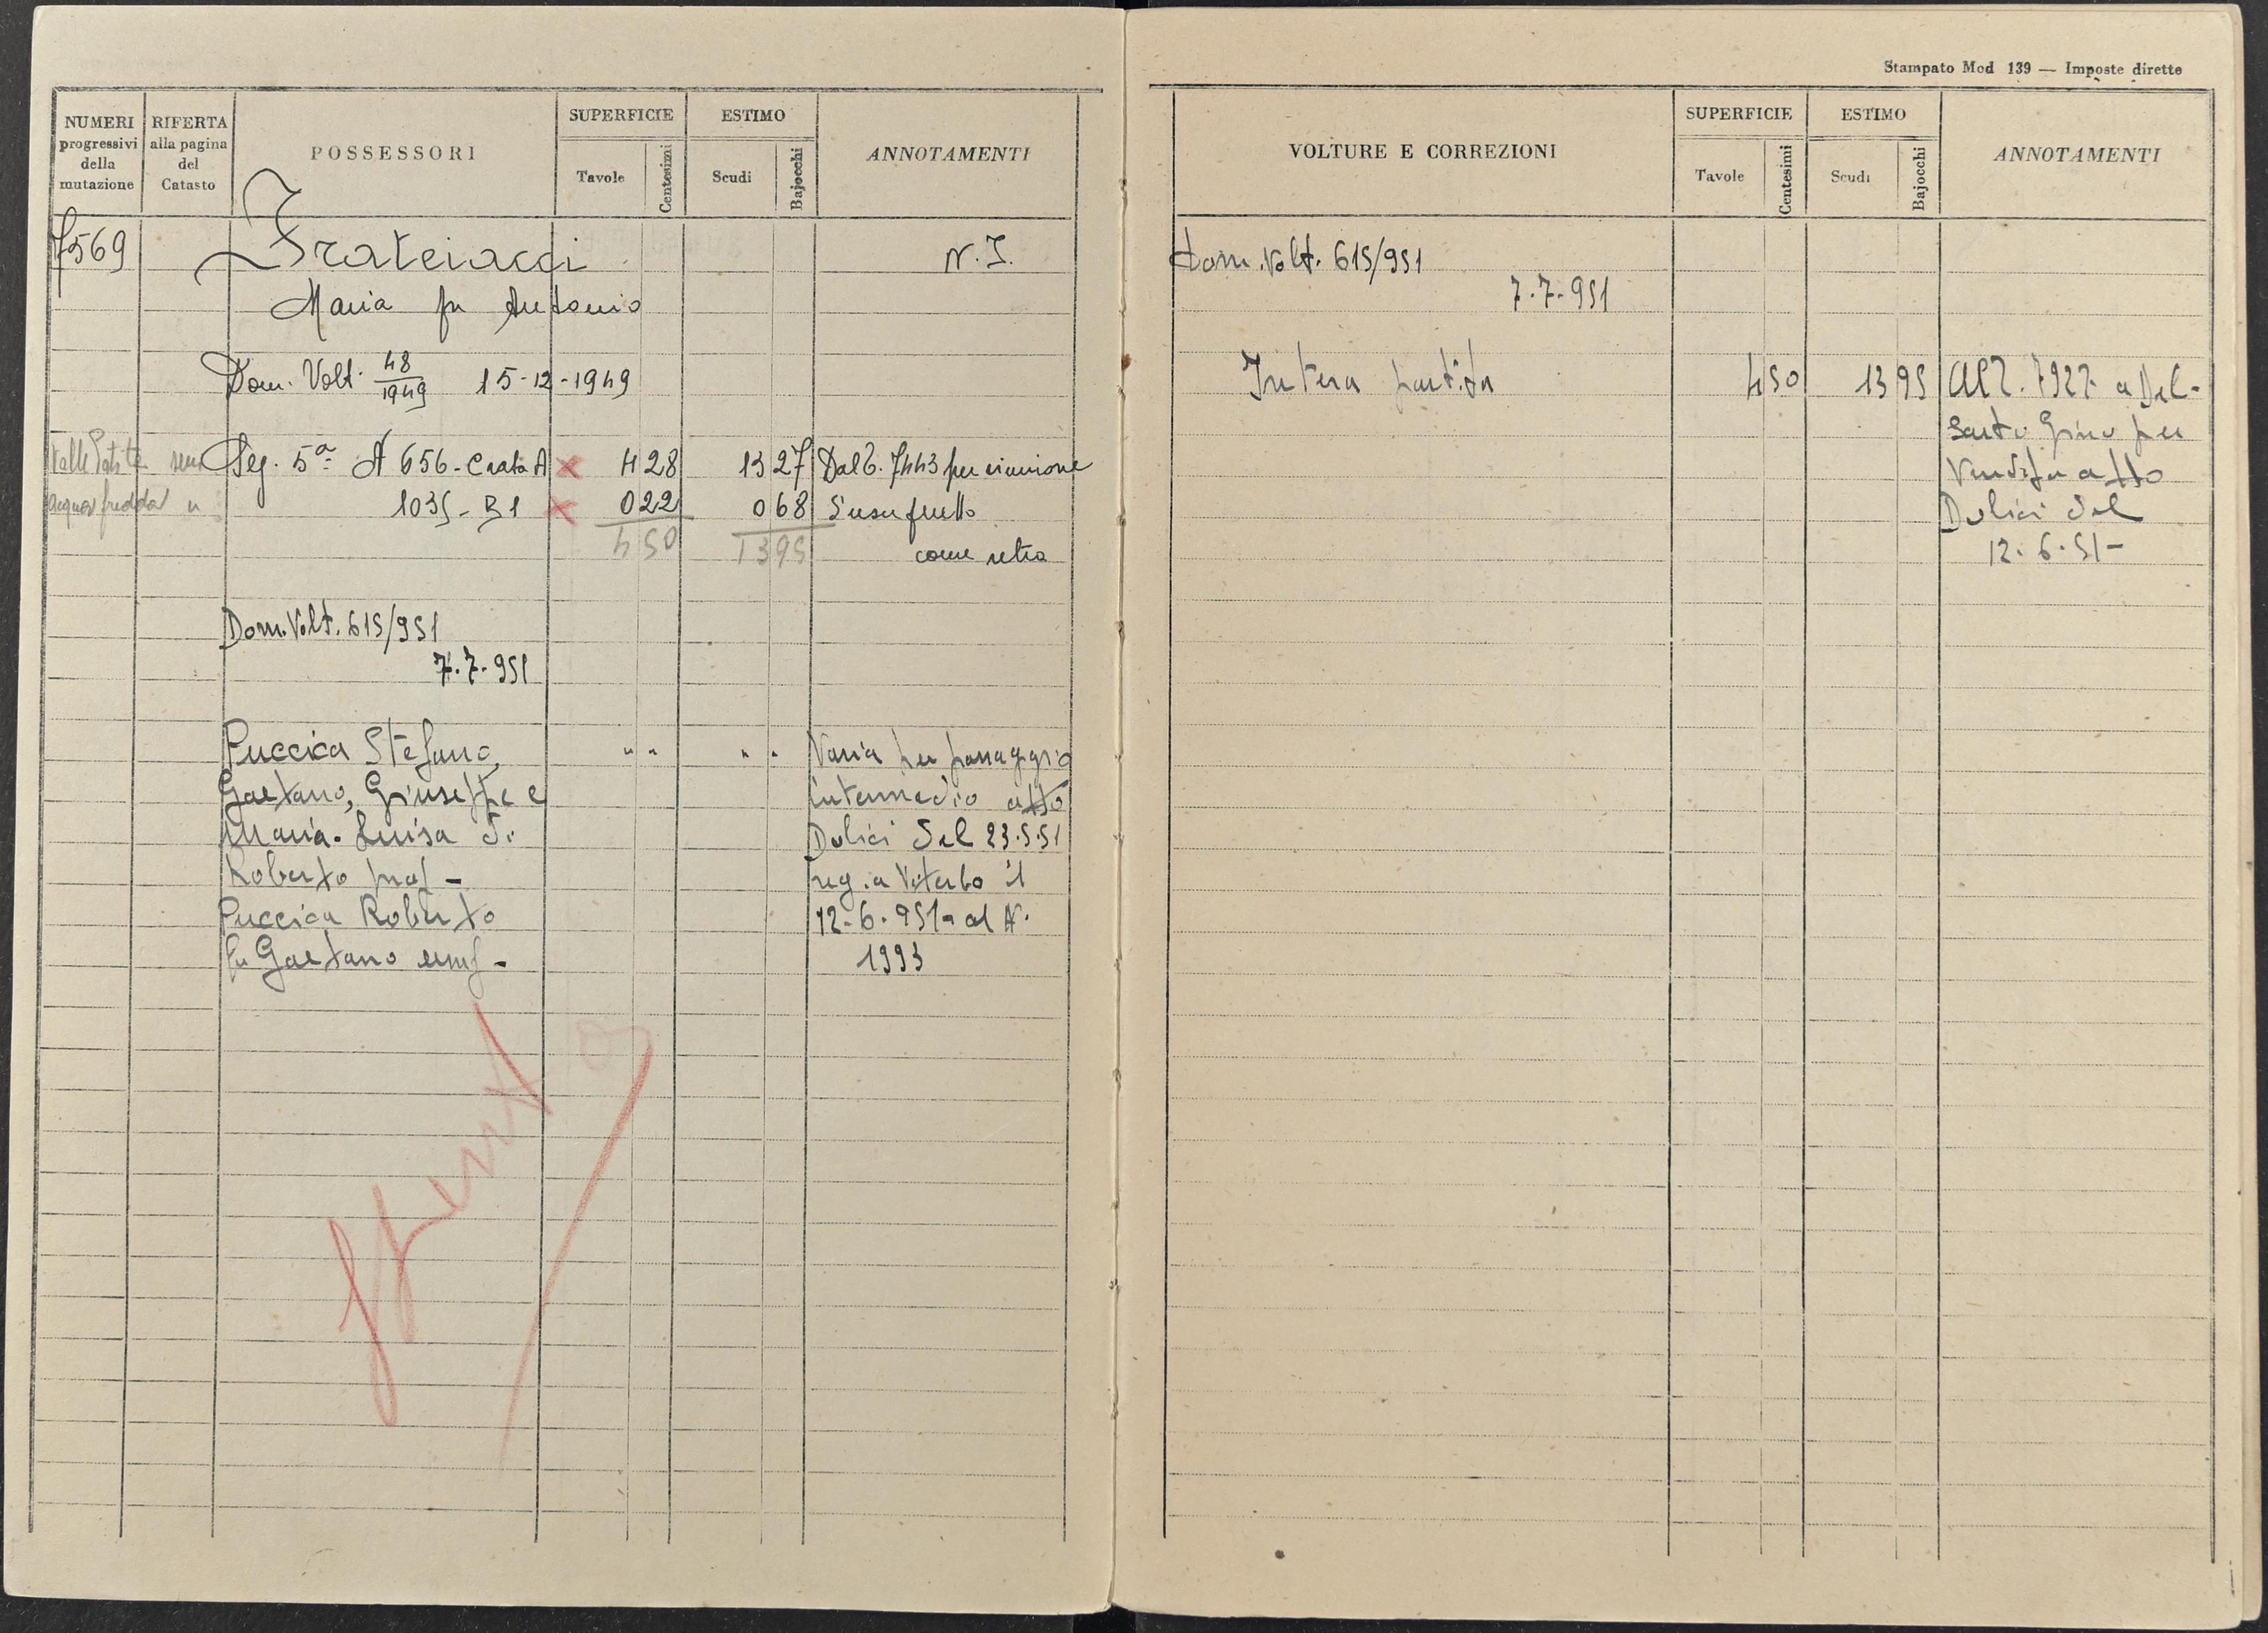 Stampato Mod 139 — Imposte dirette
NUMERI progressivi della mutazione
RIFERTA alla pagina del Catasto
POSSESSORI
SUPERFICIE
Tavole
Centesimi
ESTIMO
Scudi
Bajocchi
ANNOTAMENTI
7569 Frateiacci N.I.
Maria fu Antonio
Dom. Volt. 48/1949 15-12-1949
Valle Seg. 5ª A 656 - Crata A x 4 28 13 27 Dal 6. 7443 per riunione
Acqua fredda " 1035 - B1 x 0 22 0 68 d'usufrutto
4 50 13 95 come retro
Dom. Volt. 615/951
7.7.951
Puccica Stefano, " " " " Varia per passaggio
Gaetano, Giuseppe e intermedio atto
Maria-Luisa di Dolici del 23.5.51
Roberto prof - reg. a Viterbo il
Puccica Roberto 12-6-951 al N.
fu Gaetano usuf - 1993
spento
VOLTURE E CORREZIONI
SUPERFICIE
Tavole
Centesimi
ESTIMO
Scudi
Bajocchi
ANNOTAMENTI
Dom. Volt. 615/951
7.7.951
Intera partita 4 50 13 95 Al 7927 a Del-
Sarto Gino per
Vendita atto
Dolici del
12.6.51-